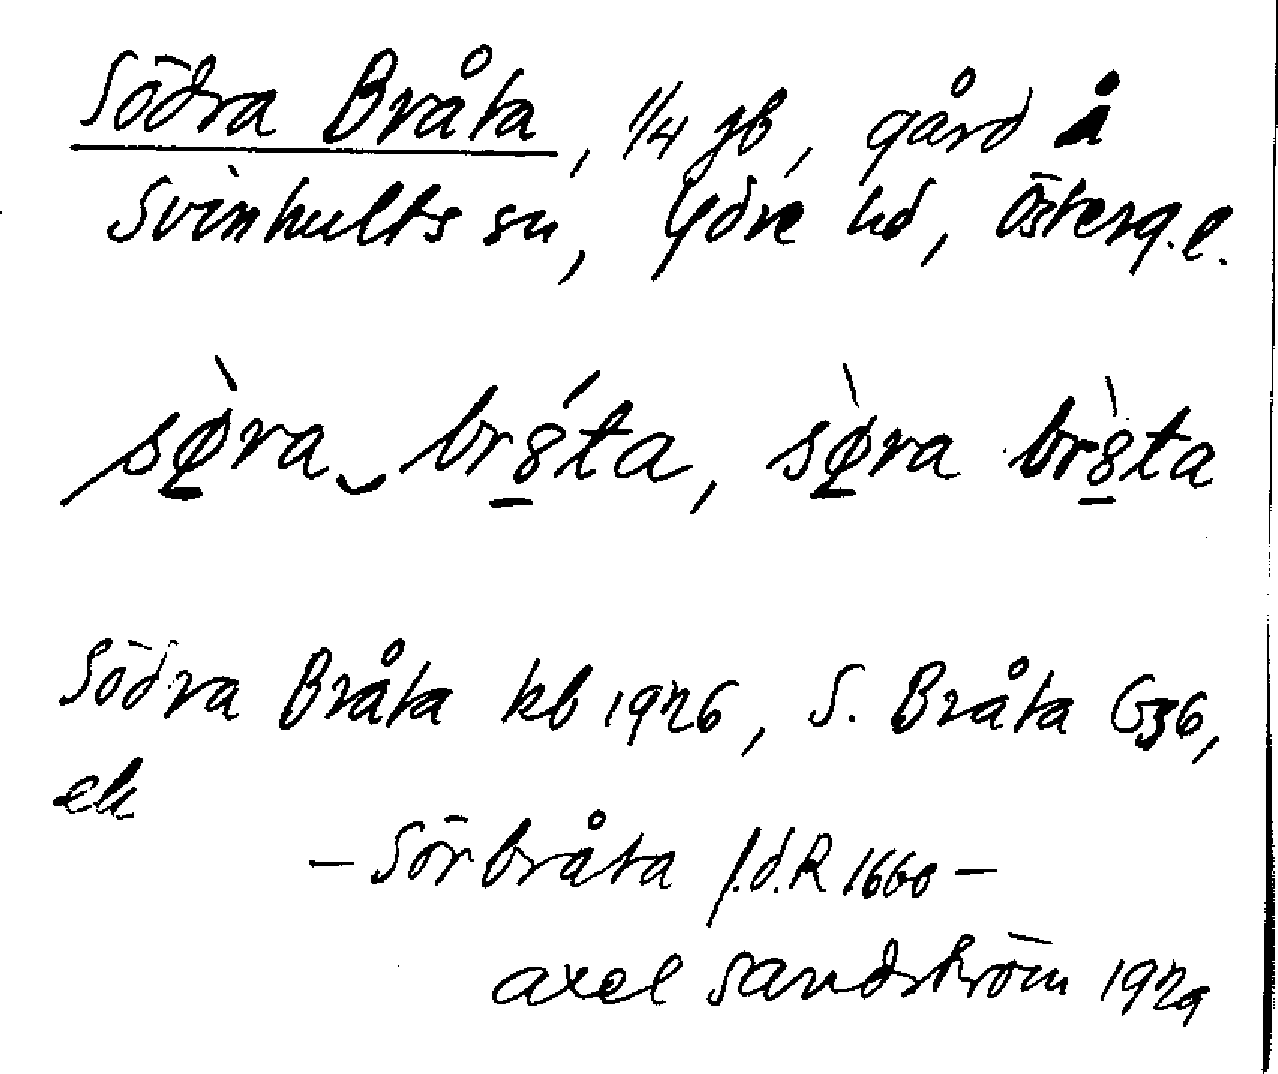 Södra Bråta, 1/4 jb, gård å
Svinhults sn, Ydre hd, Österg.l.
sø̠̀ra‿br8̠́ta, sø̠̀ra br8̠̀ta
Södra Bråta kb 1926, S. Bråta G36,
ek
– Sörbråta f.d.R 1660 –
axel Sandström 1929